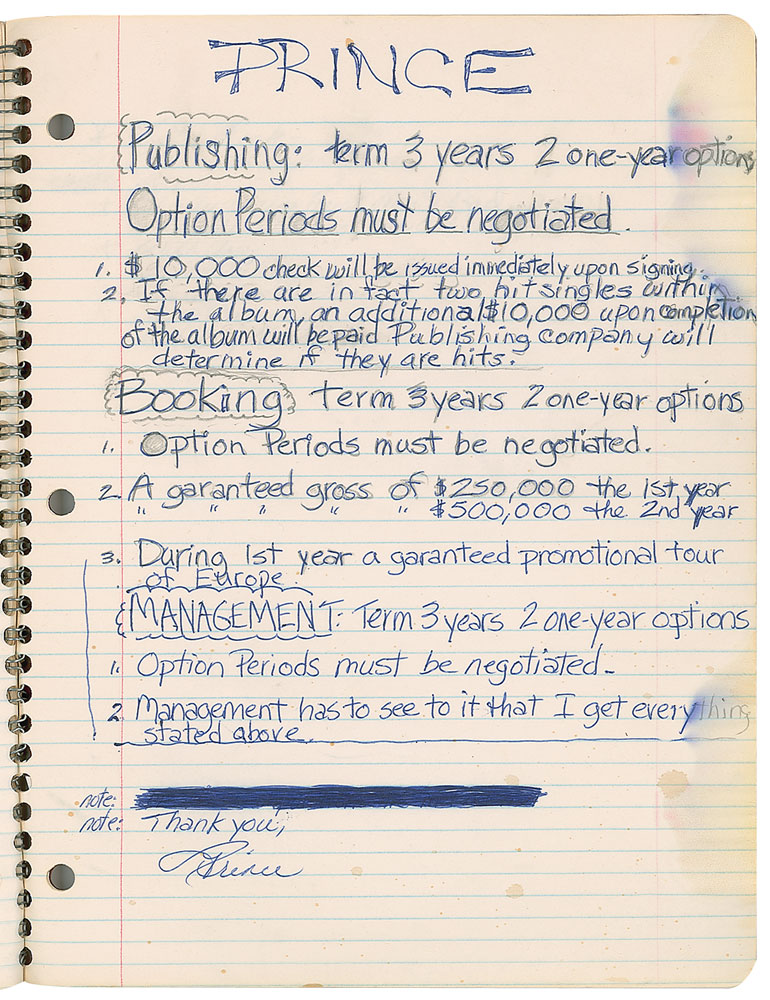 PRINCE
Publishing: term 3 years 2 one-year options
Option Periods must be negotiated.
1. $10,000 check will be issued immediately upon signing.
2. If there are in fact two hit singles within
the album, an additional $10,000 upon completion
of the album will be paid Publishing company will
determine if they are hits.
Booking term 3 years 2 one-year options
1. Option Periods must be negotiated.
2. A garanteed gross of $250,000 the 1st year
" " " " " $500,000 the 2nd year
3. During 1st year a garanteed promotional tour
of Europe.
MANAGEMENT: Term 3 years 2 one-year options
1. Option Periods must be negotiated.
2. Management has to see to it that I get everything
stated above.
note:
note: Thank you,
Prince